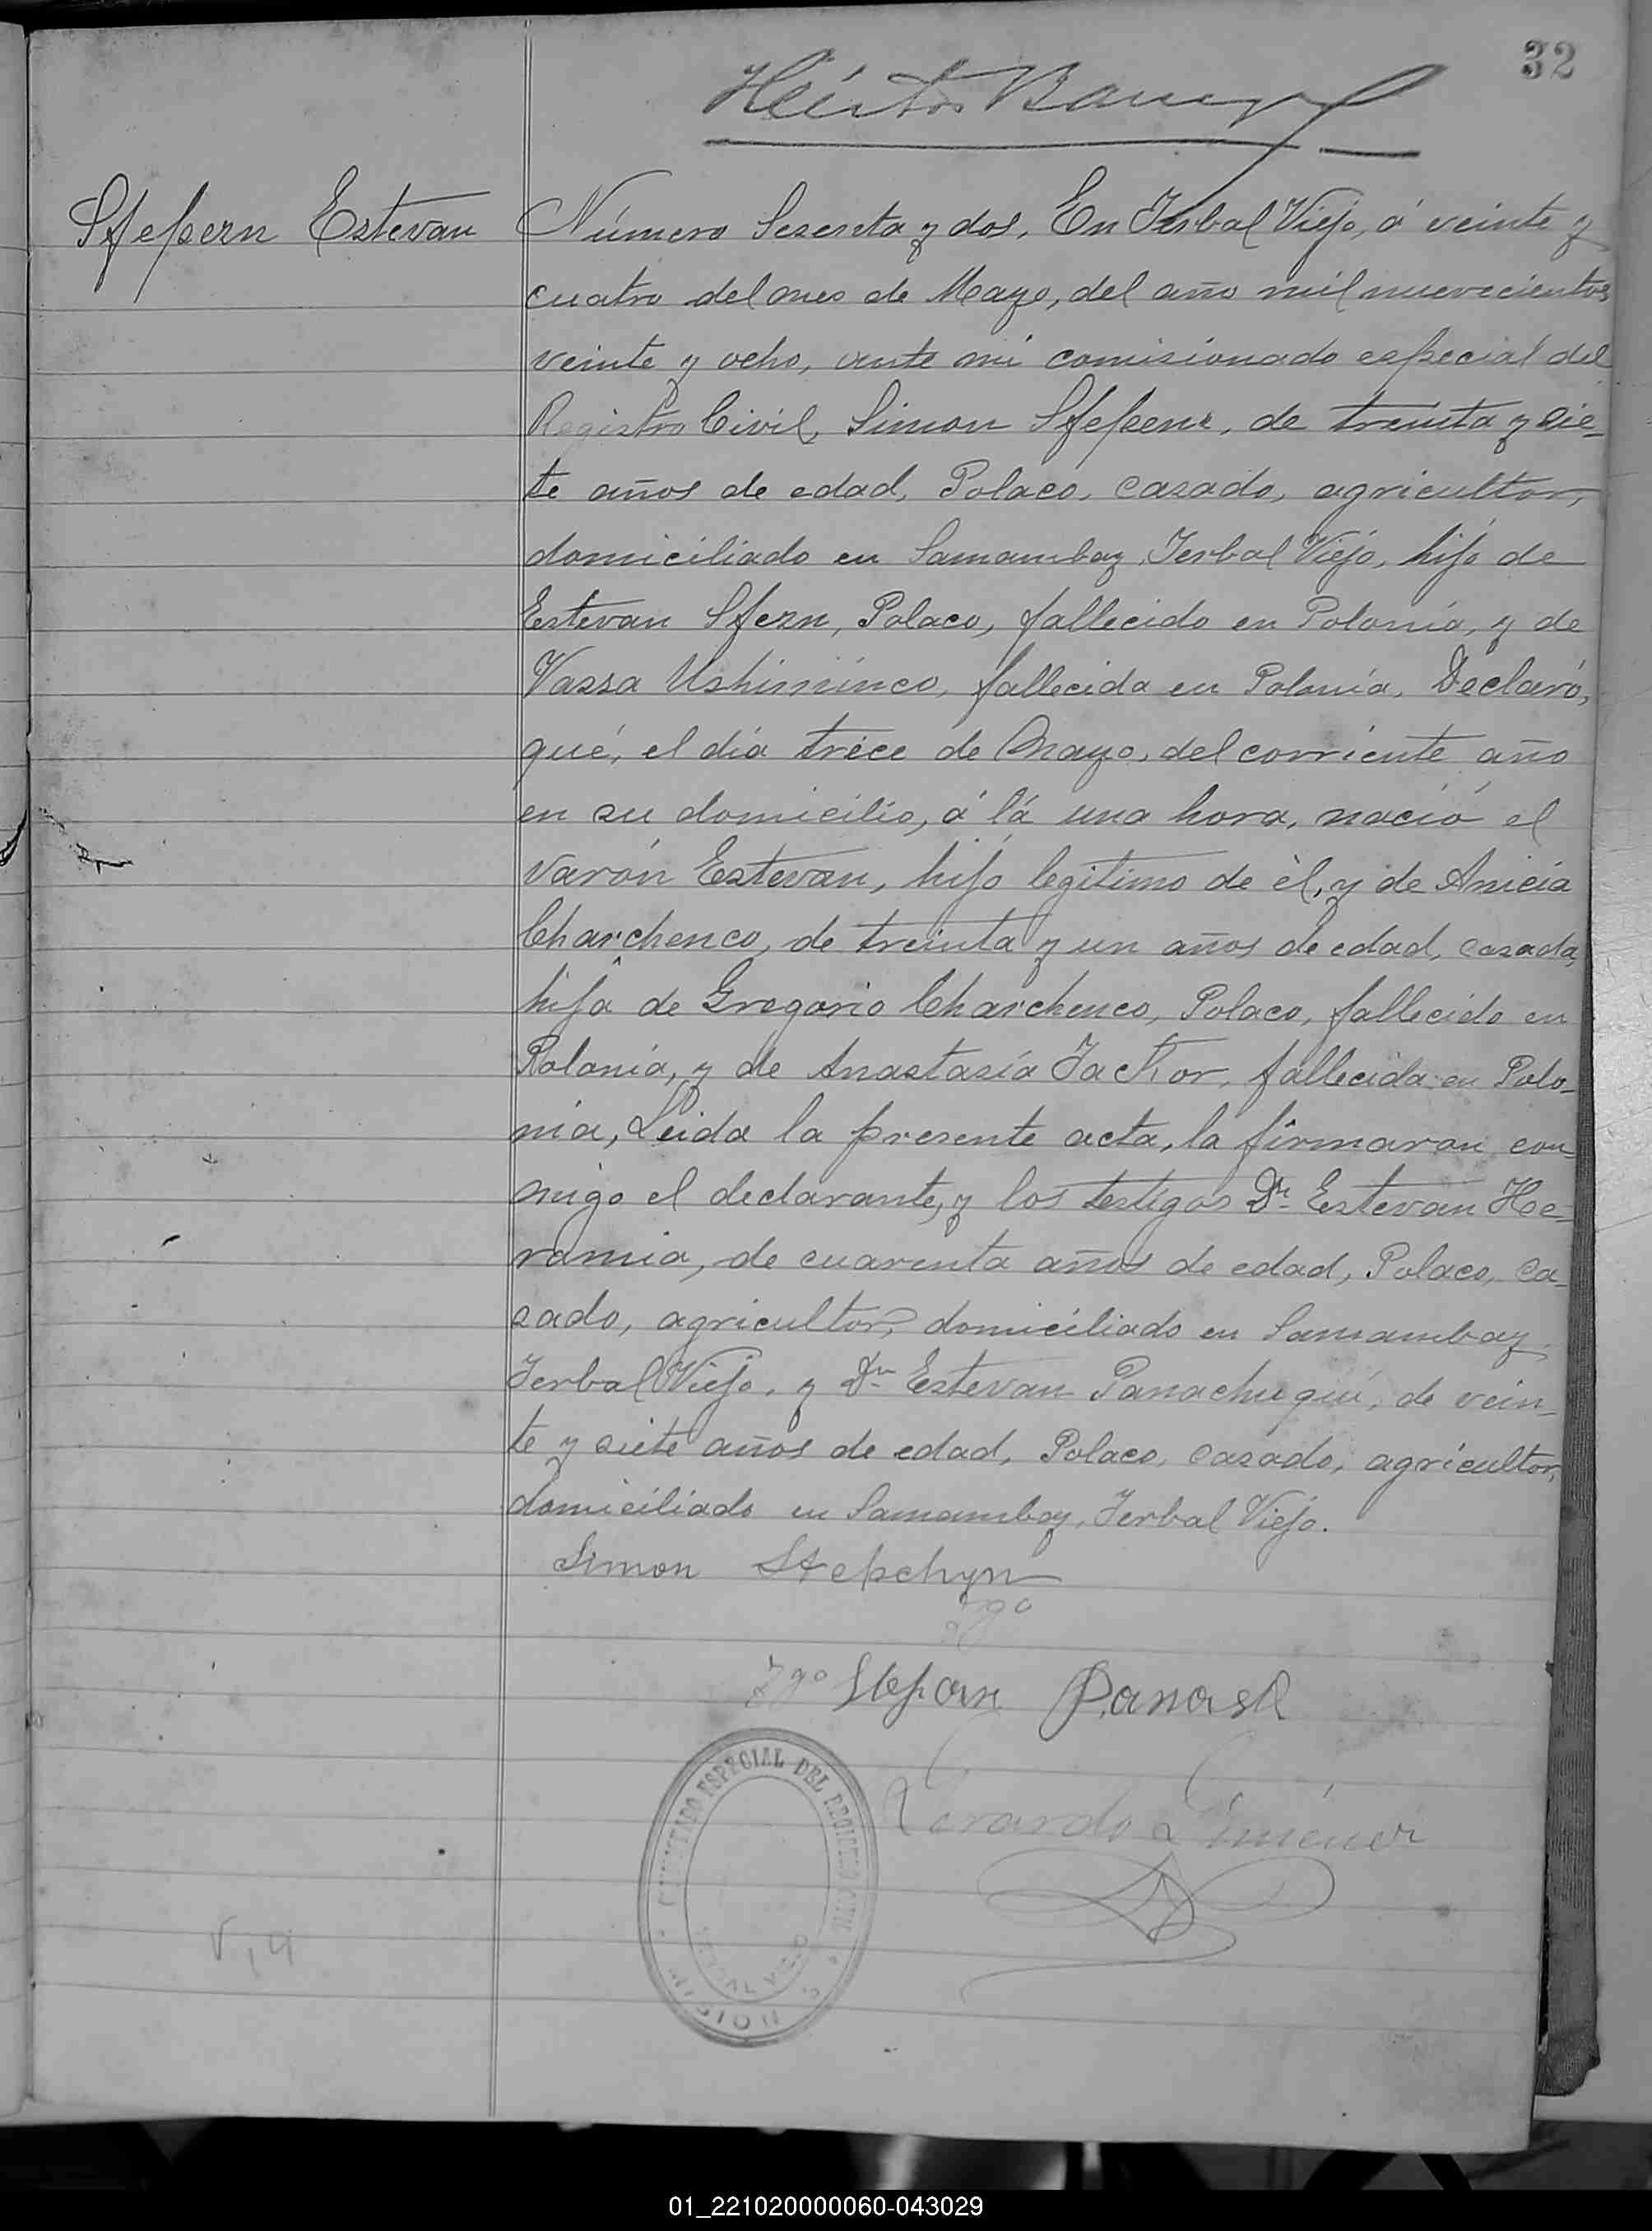 32
Stepern Estevan
Número Sesenta y dos, En Yerbal Viejo, á veinte y
cuatro del mes de Mayo, del año mil nuevecientos
veinte y ocho, ante mi comisionado especial del
Registro Civil, Simon Stepenr, de treinta y sie-
te años de edad, Polaco, casado, agricultor,
domiciliado en Samambay, Yerbal Viejo, hijo de
Estevan Stern, Polaco, fallecido en Polonia, y de
Vassa Ushiminco, fallecida en Polonia. Declaró,
qué, el día trece de Mayo, del corriente año
en su domicilio, á lá una hora, nació el
varón Estevan, hijo legitimo de èl, y de Anicia
Charchenco, de treinta y un años de edad, casada,
hija de Gregorio Charchenco, Polaco, fallecido en
Polonia, y de Anastasía Jackor, fallecida en Polo-
nia, Leida la presente acta, la firmaron con-
migo el declarante, y los testigos Dn Estevan He-
ramia, de cuarenta años de edad, Polaco, ca-
sado, agricultor, domiciliado en Samambay,
Yerbal Viejo, y Dn Estevan Panachuqui, de vein-
te y siete años de edad, Polaco, casado, agricultor,
domiciliado en Samambay, Yerbal Viejo.
Simon Stepchyn
Tgo
Tgo Stepan Panask
Gerardo Giménez
ESPECIAL DEL REGISTRO CIVIL
YERBAL VIEJO
01_221020000060-043029